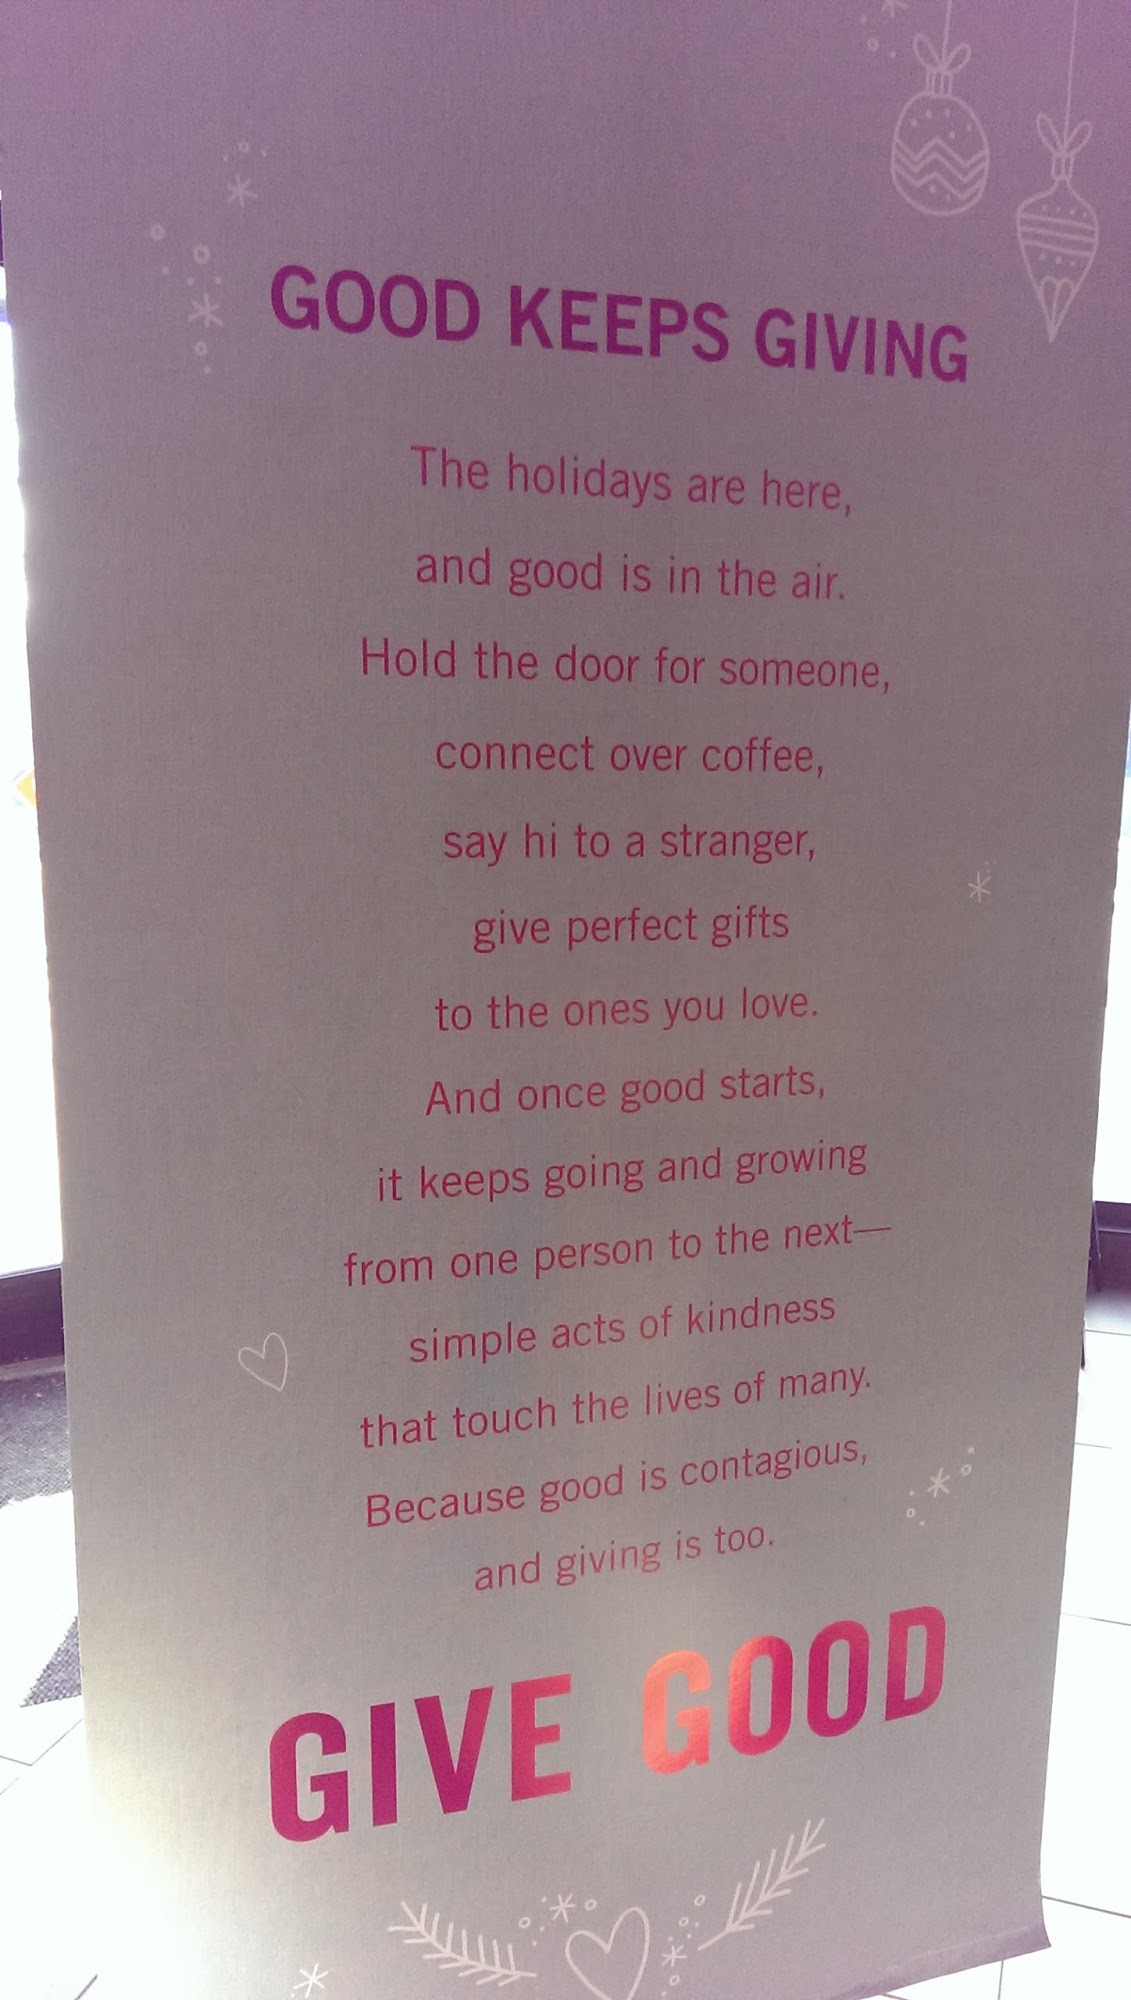 GOOD KEEPS GIVING
The holidays are here,
and good is in the air.
Hold the door for someone,
connect over coffee,
say hi to a stranger,
give perfect gifts
to the ones you love.
And once good starts,
it keeps going and growing
from one person to the next—
simple acts of kindness
that touch the lives of many.
Because good is contagious,
and giving is too.
GIVE GOOD